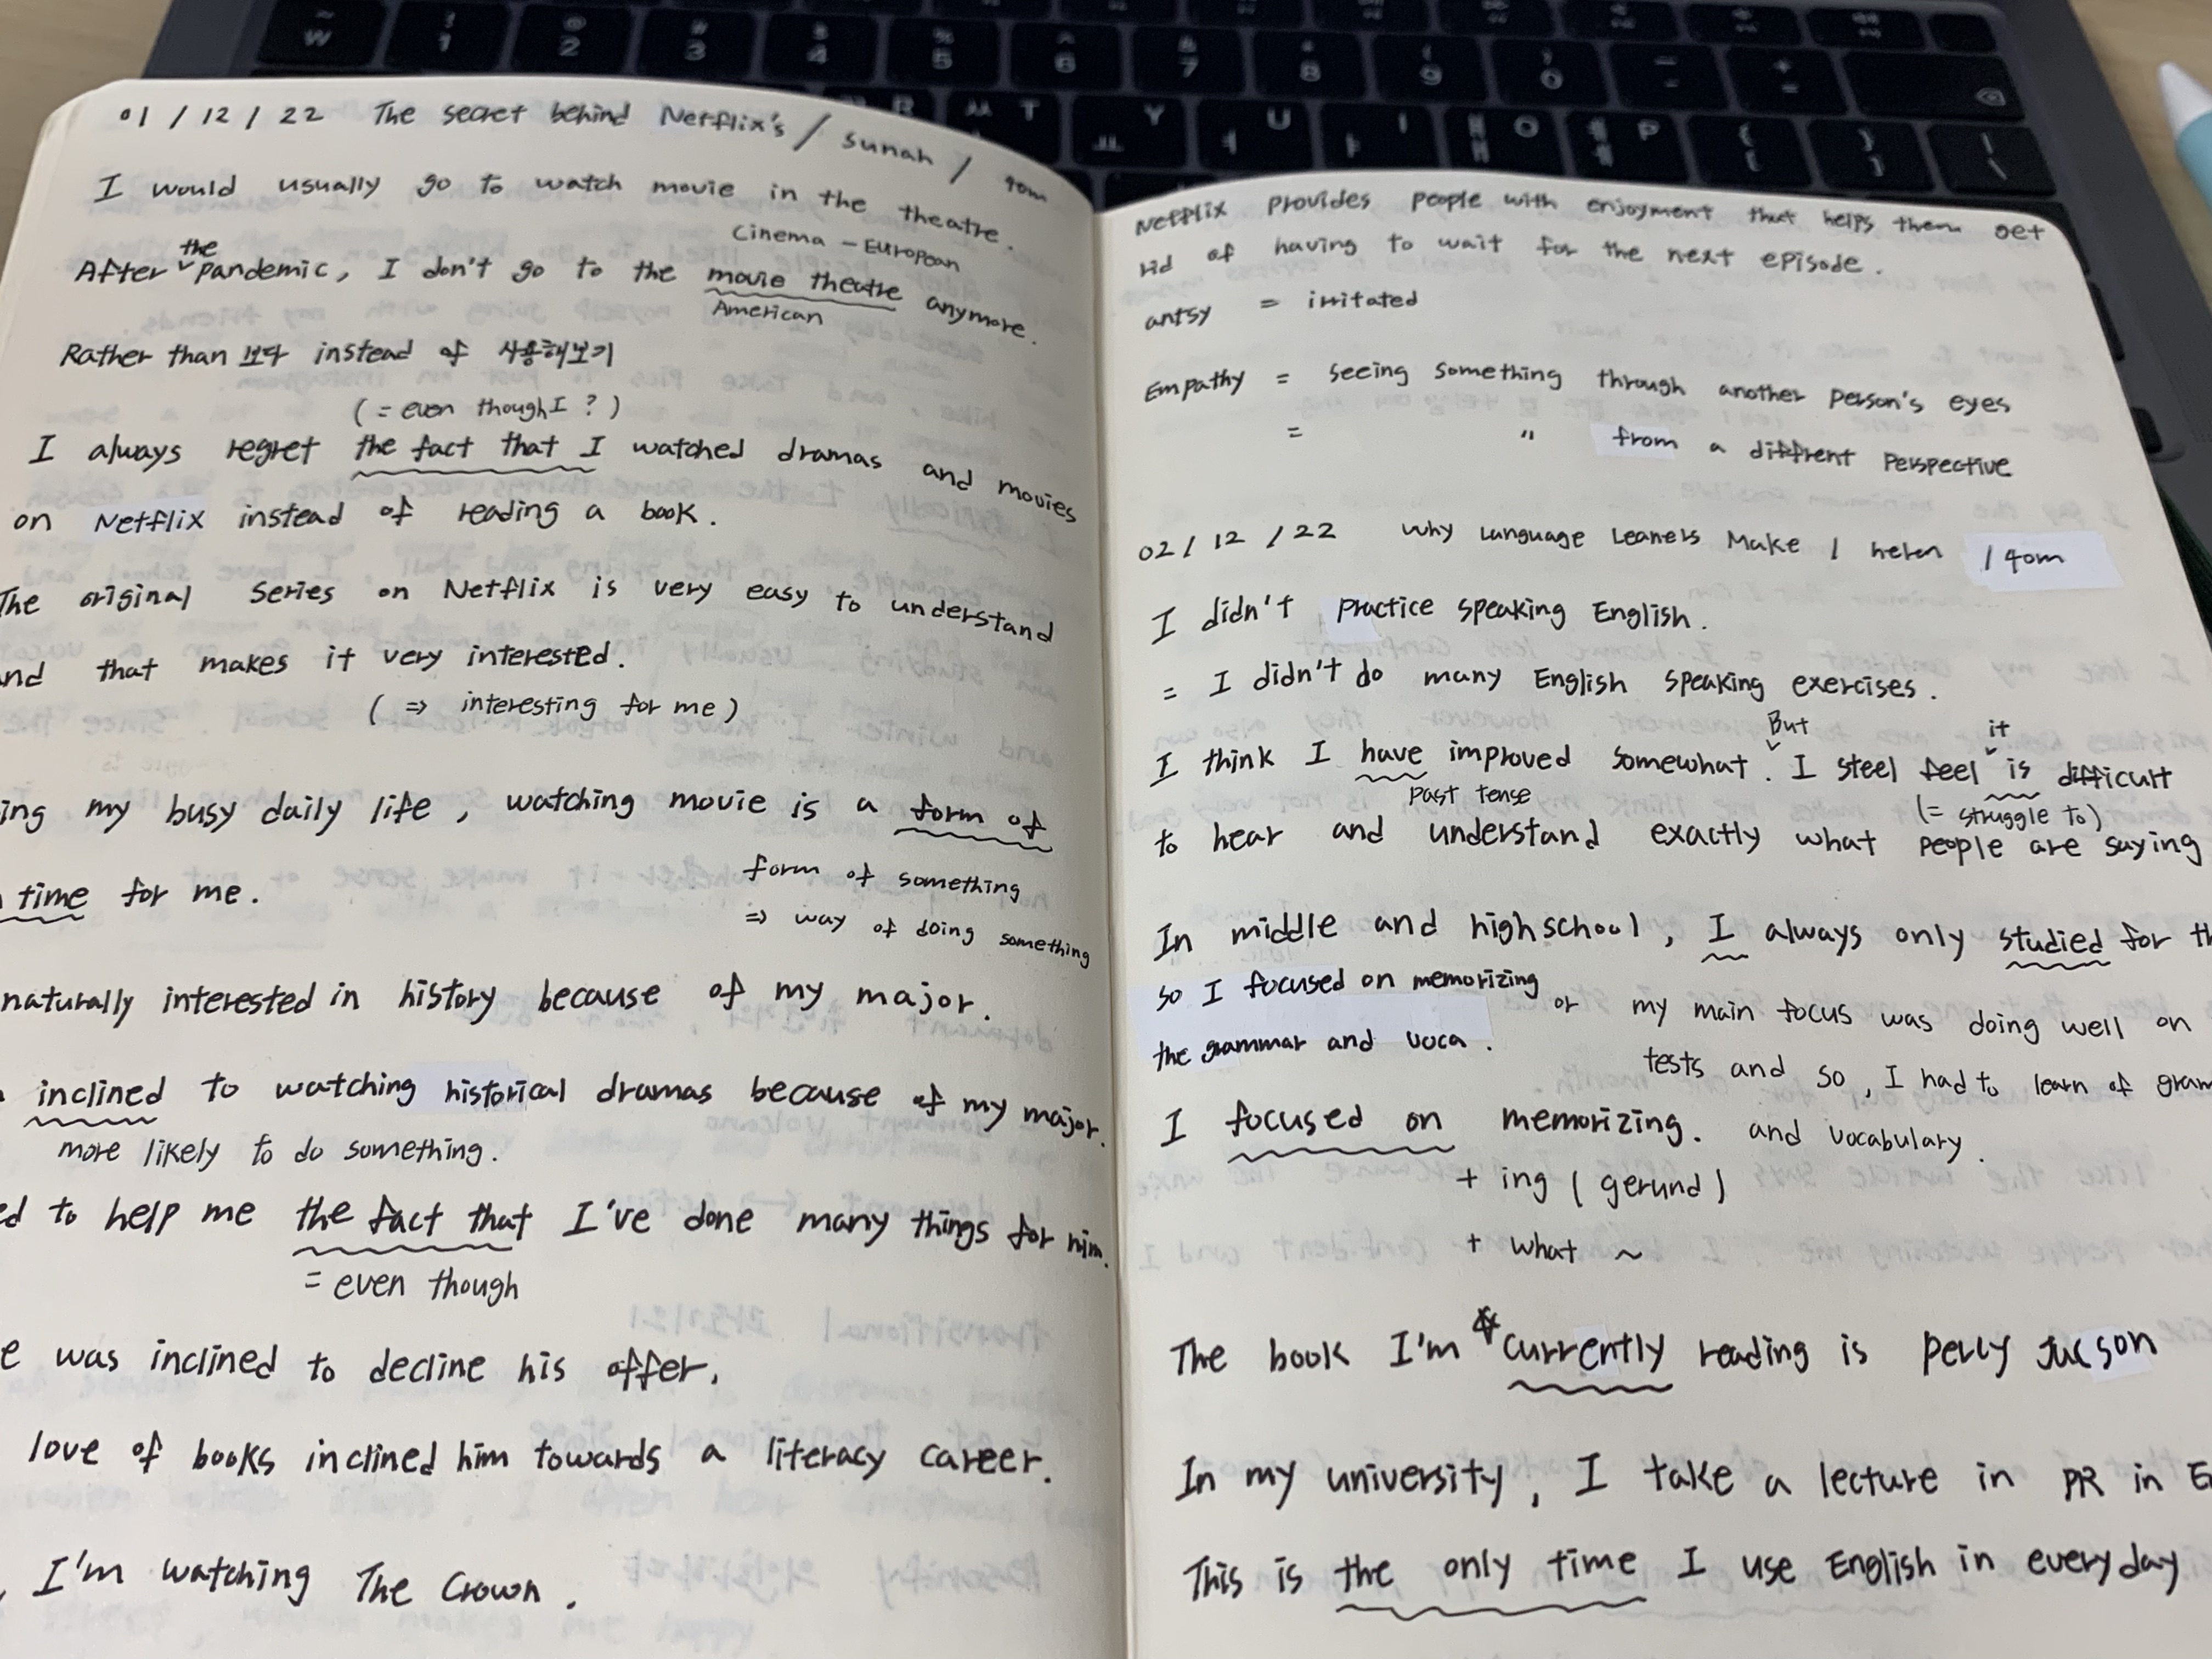 01 / 12 / 22 The secret behind Netflix's / sunah / 40m
I would usually go to watch movie in the theatre.
Cinema - European
the
After pandemic, I don't go to the movie theatre anymore.
American
Rather than 보다 instead of 사용해보기
( = even though I ? )
I always regret the fact that I watched dramas and movies
on Netflix instead of reading a book.
The original series on Netflix is very easy to understand
and that makes it very interested.
( ⇒ interesting for me )
ing my busy daily life, watching movie is a form of
form of something
⇒ way of doing something
time for me.
naturally interested in history because of my major.
inclined to watching historical dramas because of my major.
more likely to do something.
ed to help me the fact that I've done many things for him.
= even though
e was inclined to decline his offer.
love of books inclined him towards a literacy career.
, I'm watching The Crown.
Netflix provides people with enjoyment that helps them get
rid of having to wait for the next episode.
antsy = irritated
Empathy = seeing something through another person's eyes
= " from a diffrent perspective
02 / 12 / 22 Why Language Leaners Make / helen / 40m
I didn't practice speaking English.
= I didn't do many English speaking exercises.
But it
I think I have improved somewhat. I steel feel is difficult
past tense (= struggle to)
to hear and understand exactly what people are saying
In middle and high school, I always only studied for th
so I focused on memorizing
the grammar and voca.
or my main focus was doing well on
tests and so, I had to learn of gram
and vocabulary.
I focused on memorizing.
+ ing ( gerund )
+ what ~
The book I'm currently reading is percy Jucson
In my university, I take a lecture in PR in E
This is the only time I use English in everyday
~
W
!
1
@
2
#
3
$
4
%
5
^
6
&
7
*
8
(
9
)
0
T
Y
U
I
O
P
{
[
}
]
|
\